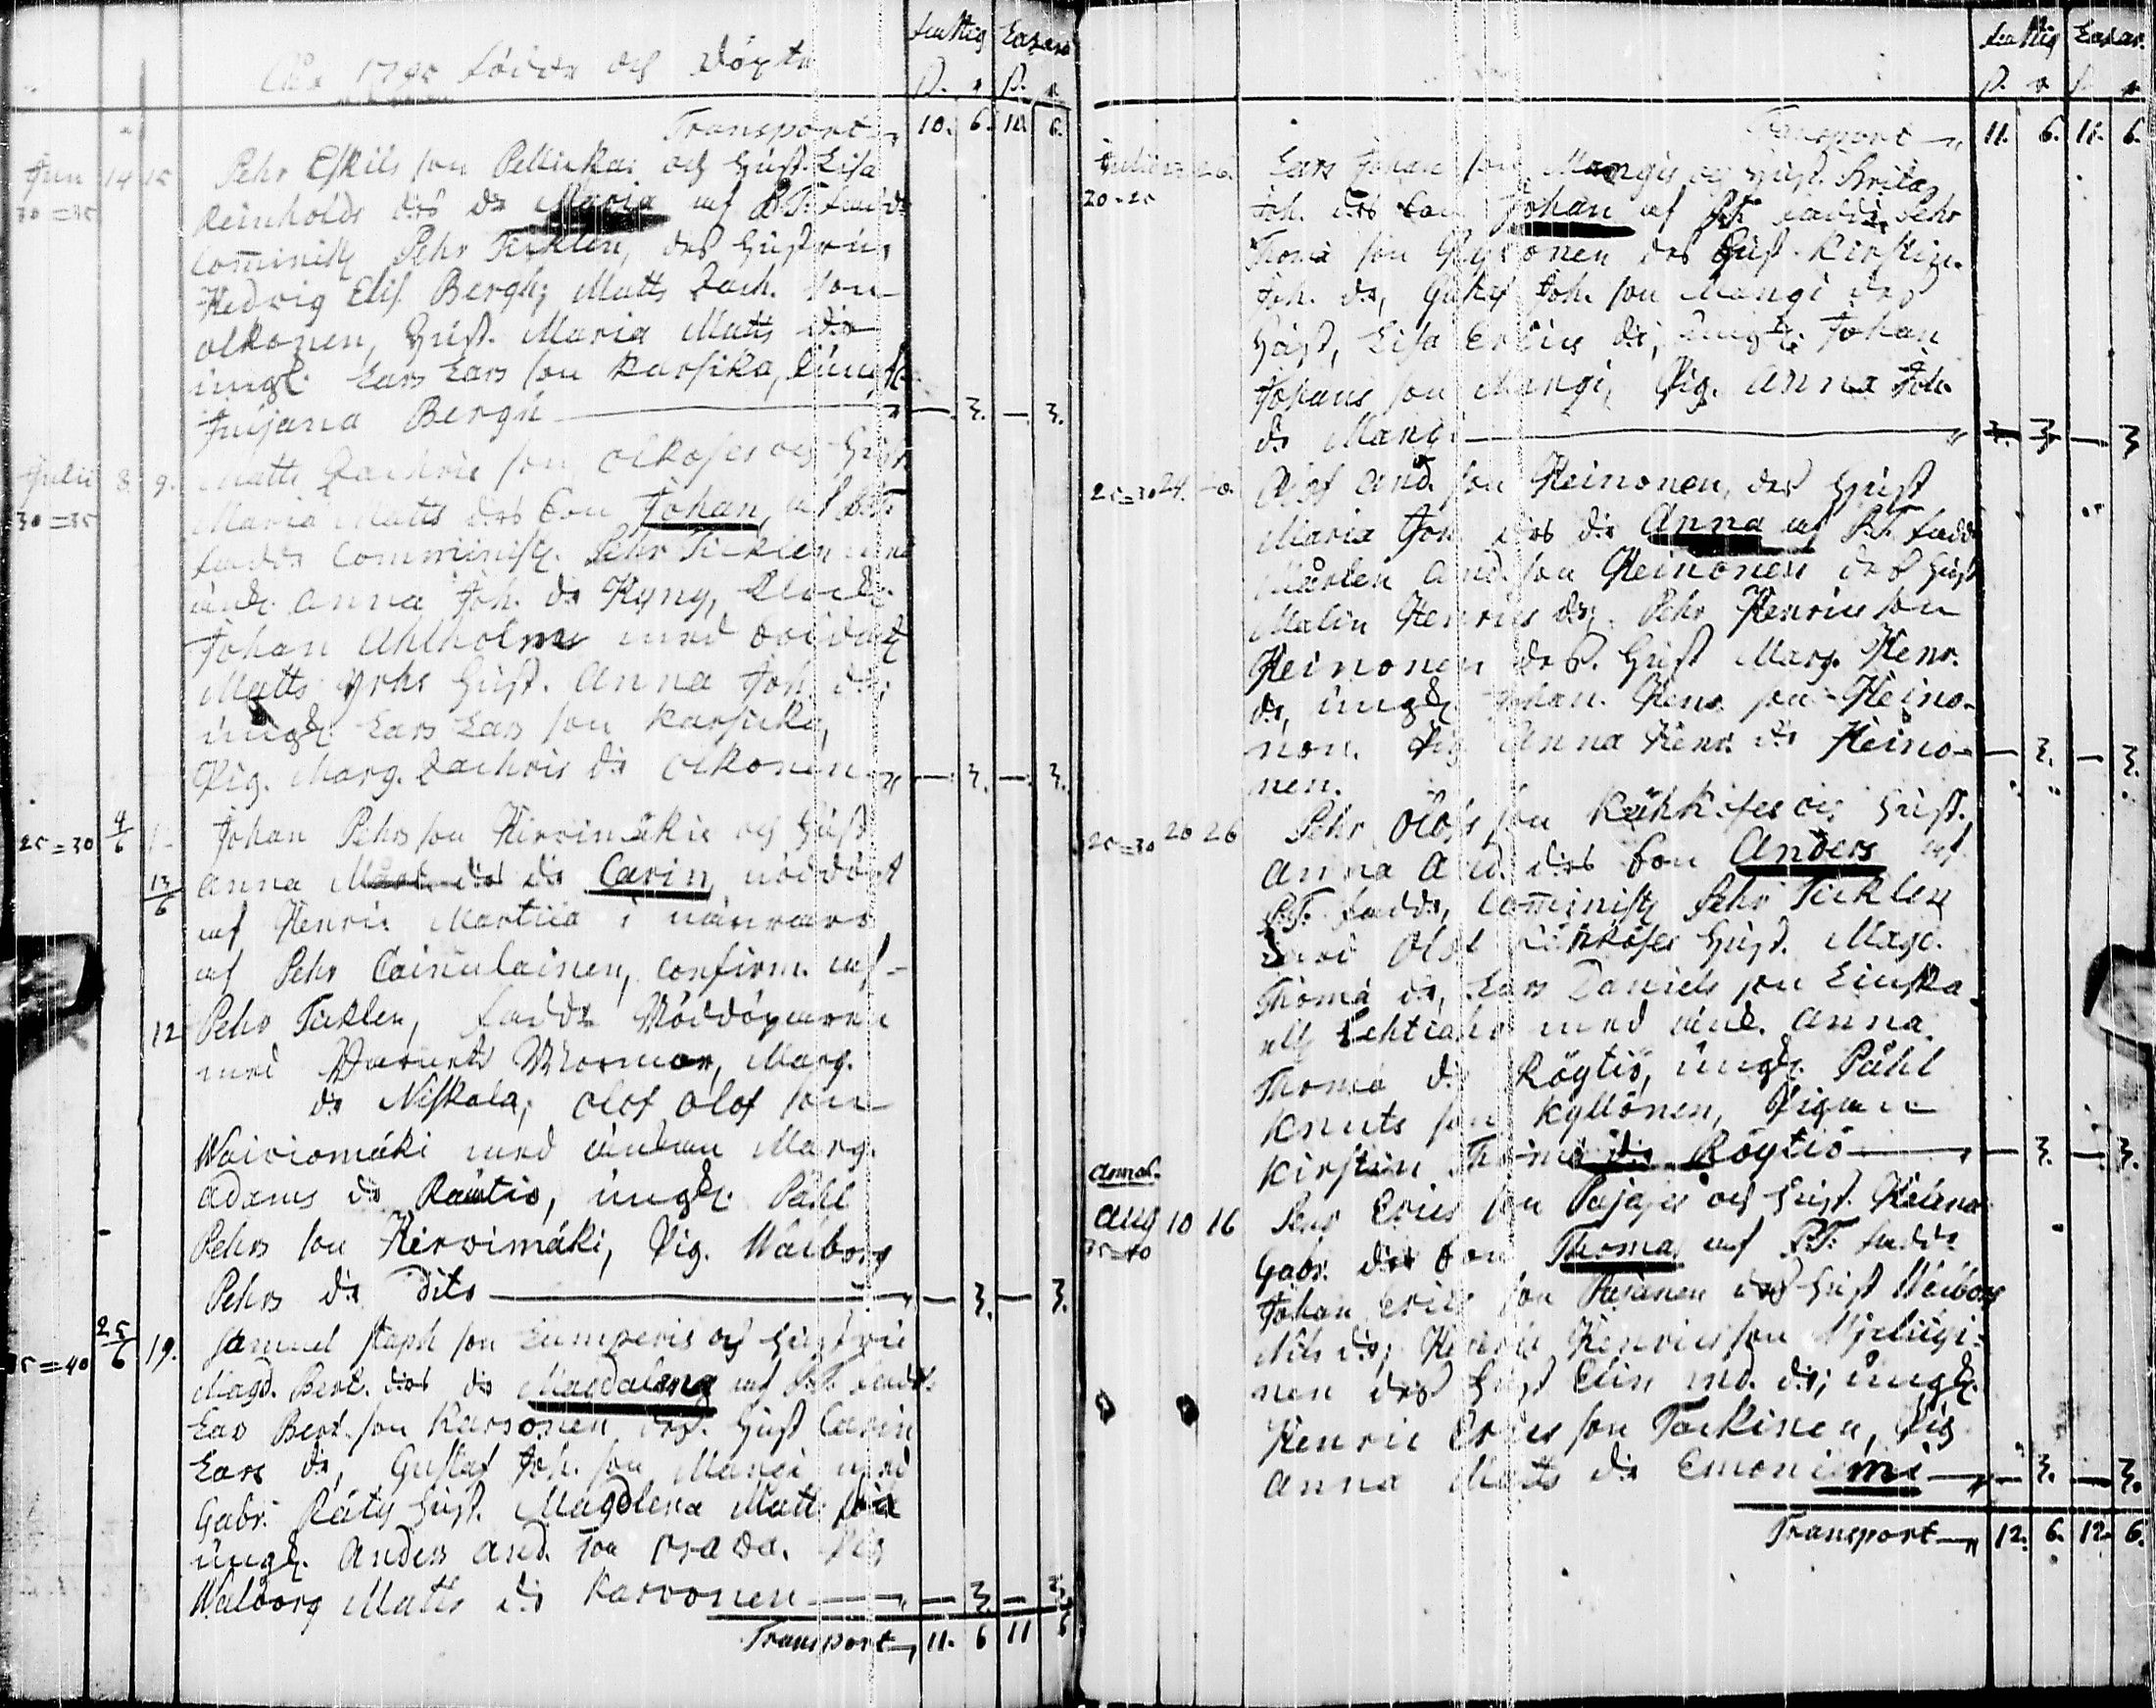 1795 födde och döpte
fattig Lazar
p. r p. r
Transport 10. 6. 10. 6.
Jun 14 15 Pehr Eskils son Pellikai och Hust. Lisa
30=35 Reinholds dr ds dr Maria af P.T. fadd.
Commnist. Pehr Ticklen, dess Hustru
Hedvig Elis. Bergh; Matts Zach. son
Olkonen, Hust. Maria Matts dr
ungk. Lars Lars son Karsika,
Juljana Bergh — 3. — 3.
Julii 8. 9. Matts Zachris son Olkoses och Hust
30=35 Maria Matts drs son Johan, af P.T.
fadd. Comminist. Pehr Ticklen med
änk. Anna Joh. dr Kyny, Klock.
Johan Ahlholm med
Matts Yrks Hust. Anna Joh. dr;
ungk. Lars Lars son Karsika,
Pig. Marg. Zachris dr Olkonen — 3. — 3.
25=30 4/6 Johan Pehrs son Hirvimäkis och Hust
13/6 Anna Mårt. drs dr Carin, nöddöpt
af Henric Martiia i närvaro
af Pehr Cainulainen, confirm. af
12 Pehr Ticklen, fadd. Nöddöparen
med Barnets Mormor, Marg.
dr Niskala; Olof Olof son
Waiviomäki med änkan Marg.
Adams dr Rautio, ungk. Påhl
Pehrs son Hirvimäki, Pig. Walborg
Pehrs dr dito — 3. — 3.
35=40 25/6 19. Samuel Staph son Lumperis och Hustru
Magd. Bert. drs dr Magdalena af P.T. fadd.
Lars Bert. son Karvonen dess Hust Carin
Lars dr, Gustaf Joh. son Mangi med
Gabr. Räty Hust. Magdlena Matts dr
ungk. Anders And. son Pig
Walborg Matts dr Karvonen — 3. — 3.
Transport 11. 6 11 6
fattig Lazar.
p. r p. r
Transport 11. 6. 11. 6.
Julii 26. Lars Johan son Mangis och Hust. Britas
20=25 Joh. drs son Johan af P.T. fadd. Pehr
Thoma son Kylönen dess Hust. Kirstin
Joh. dr, Gustaf Joh. son Mangi dess
Hust, Lisa Erics dr; ungk. Johan
Johans son Mangi, Pig. Anna Joh.
dr Mangi — 3 — 3
25=30 24. Olof And. son Heinonen, des Hust
Maria Joh drs dr Anna af P.T. fadd.
Mårten And. son Heinonen dess Hust
Malin Henrics dr; Pehr Henrics son
Heinonen dess. Hust Marg. Henr.
dr, ungk. Johan. Henr. son Heino-
non. Pig Anna Henr. dr Heino- — 3. — 3.
nen.
25=30 26 26 Pehr Olofs son Kähköses och Hust.
Anna And. drs son Anders af
P.T. fadd., Comminist. Pehr Ticklen
med Olof Kähköses Hust. Magd.
Thoma dr, Lars Daniels son
Lehtiaho med änk. Anna
Thoma dr Röytiö, ungk. Påhl
Knuts son Kyllönen, Pigan
Kirstin Thoma dr Röytiö — 3. — 3.
Annot.
Aug 10 16 Pehr Erics son Pajajes och Hust. Helena
35=40 Gabr. drs son Thoma af P.T. fadd.
Johan Erics son Pajanen dess Hust Walborg
Nils dr; Henric Henrics son
nen dess Hust Elin And. dr; ungk.
Henric Erics son Tackinen, Pig
Anna Matts dr Emoniemi — 3. — 3.
Transport 12. 6. 12. 6.